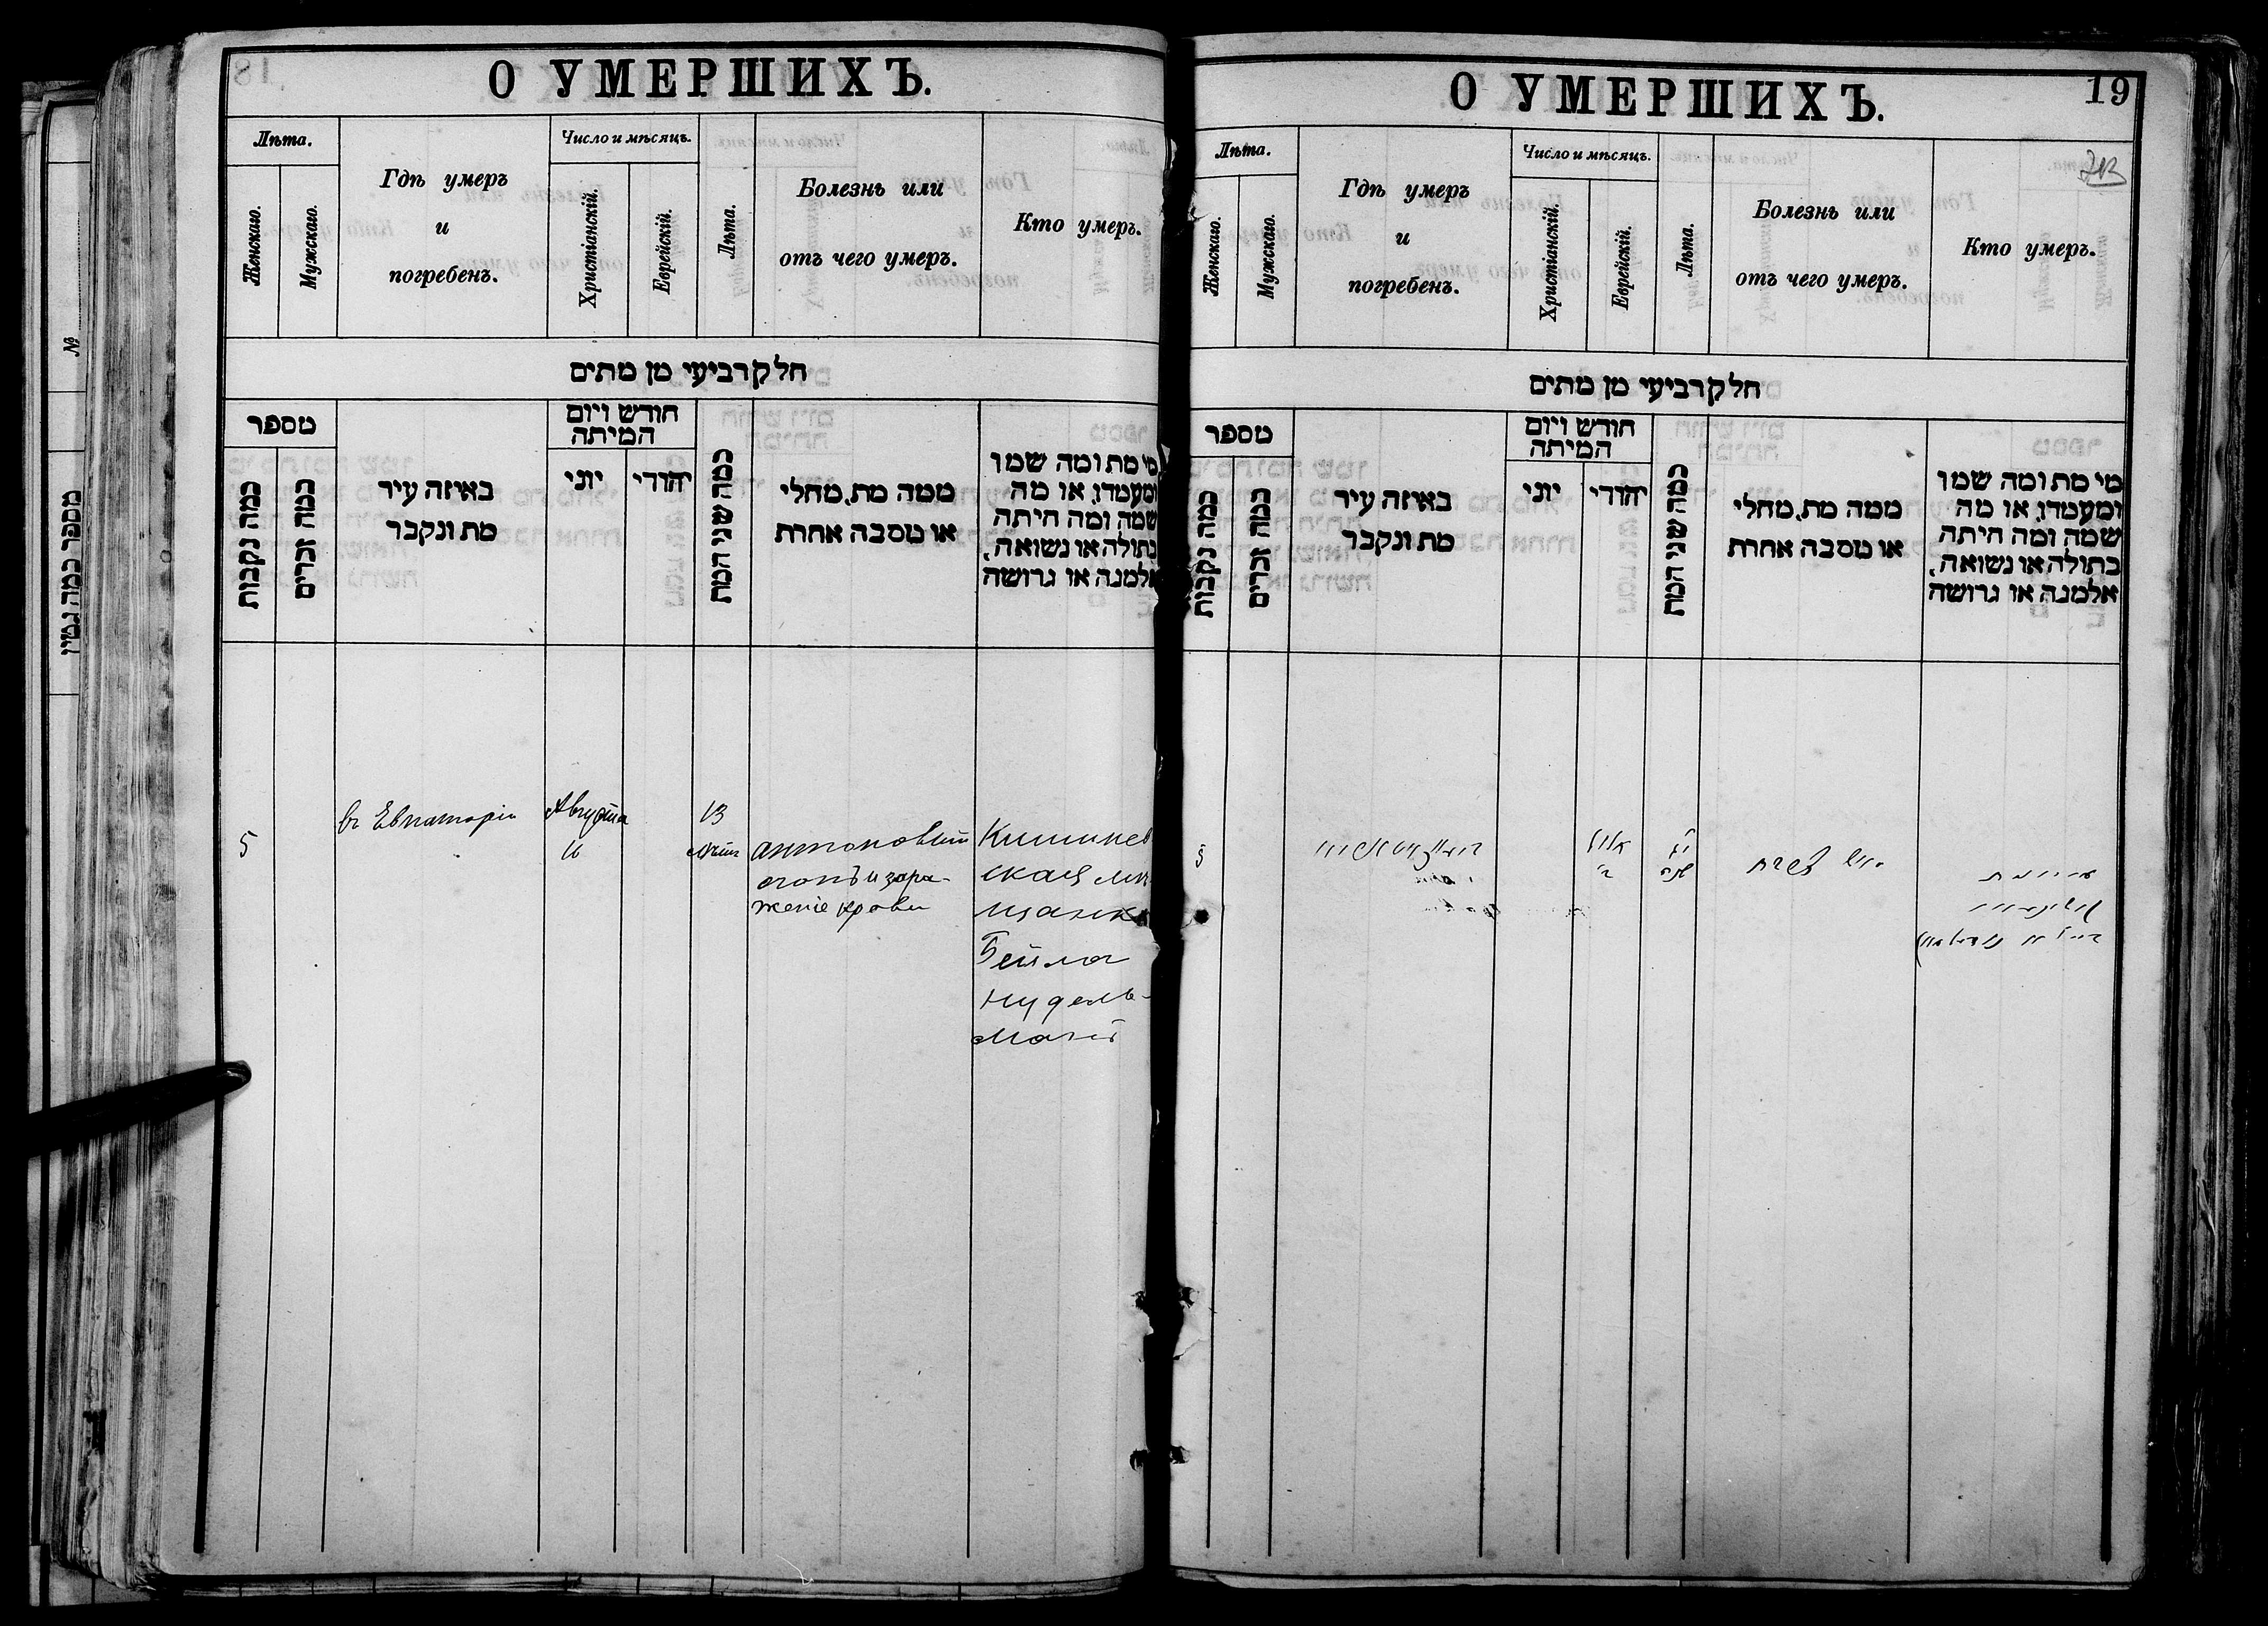 О УМЕРШИХЪ.
Лѣта.
Женскаго.
Мужскаго.
Гдѣ умеръ
и
погребенъ.
Число и мѣсяцъ.
Христіанскій.
Еврейскій.
Лѣта.
Болезнь или
отъ чего умеръ.
Кто умеръ.
חלק רביעי מן מתים
מספר
כמה נקבות
כמה זכרים
באיזה עיר
מת ונקבר
חודש ויום
המיתה
יוני
יהודי
כמה שני המת
ממה מת, מחלי
או מסבה אחרת
מי מת ומה שמו
ומעמדו, או מה
שמה ומה היתה
בתולה או נשואה,
אלמנה או גרושה
5
въ Евпаторіи
Августа
16
13
лѣтъ
антоновый
огонь и зара-
женіе крови
Кишинев
ская мѣ
щанка
Бейла
Нудель-
манъ
О УМЕРШИХЪ.
19
Лѣта.
Женскаго.
Мужскаго.
Гдѣ умеръ
и
погребенъ.
Число и мѣсяцъ.
Христіанскій.
Еврейскій.
Лѣта.
Болезнь или
отъ чего умеръ.
Кто умеръ.
חלק רביעי מן מתים
מספר
כמה נקבות
כמה זכרים
באיזה עיר
מת ונקבר
חודש ויום
המיתה
יוני
יהודי
כמה שני המת
ממה מת, מחלי
או מסבה אחרת
מי מת ומה שמו
ומעמדו, או מה
שמה ומה היתה
בתולה או נשואה,
אלמנה או גרושה
5
№
מספר כמה גטין